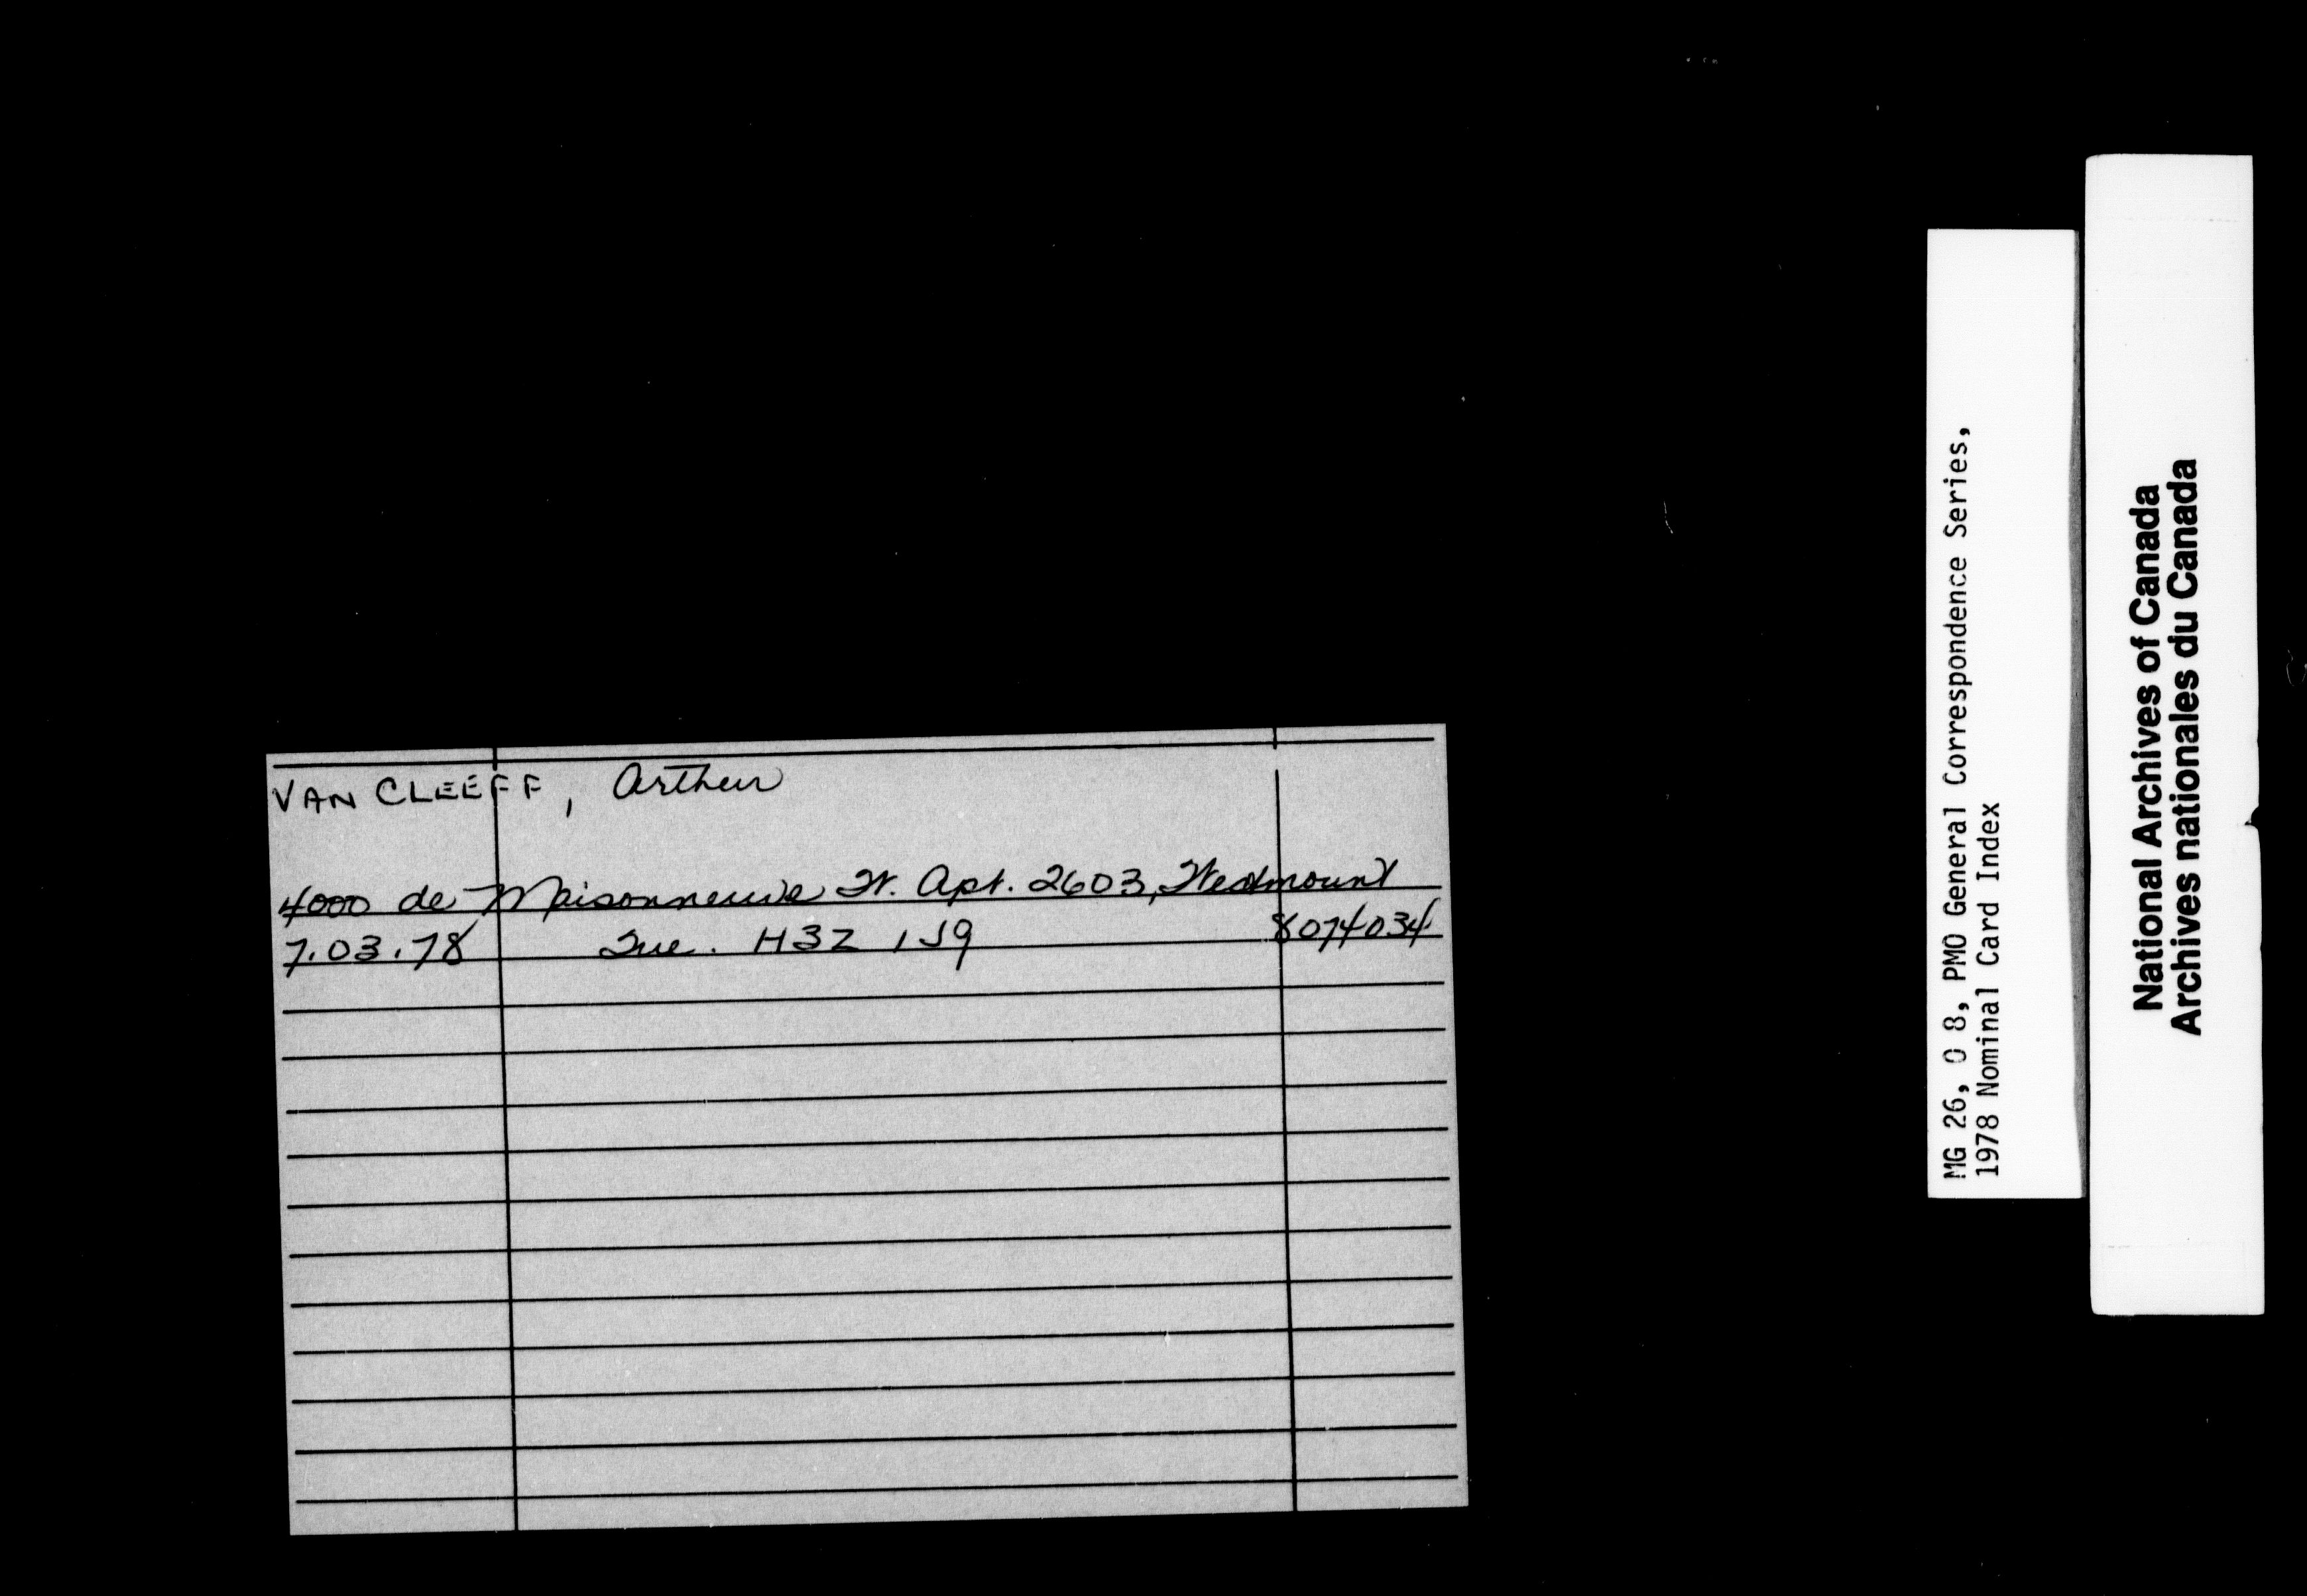 VAN CLEEFF, Arthur
4000 de Maisonneuve W. Apt. 2603, Westmount
7.03.78 Que. H3Z 1J9 8074034
MG 26, O 8, PMO General Correspondence Series,
1978 Nominal Card Index
National Archives of Canada
Archives nationales du Canada